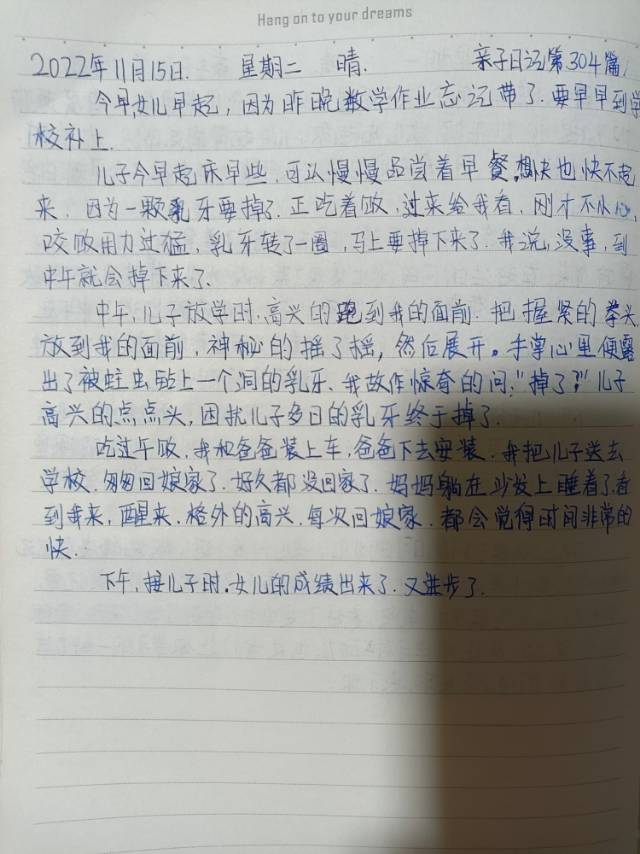 Hang on to your dreams
2022年11月15日. 星期二 晴. 亲子日记第304篇
今早,女儿早起,因为昨晚数学作业忘记带了.要早早到学
校补上.
儿子今早起床早些,可以慢慢品尝着早餐,想快也快不起
来,因为一颗乳牙要掉了.正吃着饭,过来给我看,刚才不小心,
咬饭用力过猛,乳牙转了一圈,马上要掉下来了.我说,没事,到
中午就会掉下来了.
中午,儿子放学时,高兴的跑到我的面前.把握紧的拳头
放到我的面前,神秘的摇了摇,然后展开。手掌心里便露
出了被蛀虫钻上一个洞的乳牙.我故作惊奇的问:"掉了?"儿子
高兴的点点头,困扰儿子多日的乳牙终于掉了.
吃过午饭,我和爸爸装上车,爸爸下去安装.我把儿子送去
学校.匆匆回娘家了.好久都没回家了.妈妈躺在沙发上睡着了,看
到我来,醒来.格外的高兴.每次回娘家.都会觉得时间非常的
快.
下午,接儿子时.女儿的成绩出来了.又进步了.